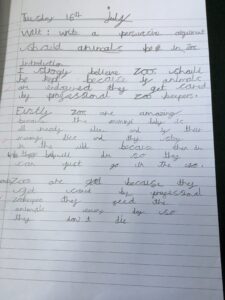 Tuesday 16th July
Walt: write a persuasive argument
should animals be in zoo
Introduction
I strongly believe zoos should
be kept because if animals
an endangered they get cared
by professional zoo keepers.
Firstly zoo are amazing
because the mummys baby
all ready dies and the
mummy dies and they stay
in the wild because then
there baby will die so they
can just go in the zoo.
zoos are good because they
get cared by professional
zookeepers they feed the
animals every day so
they don't die